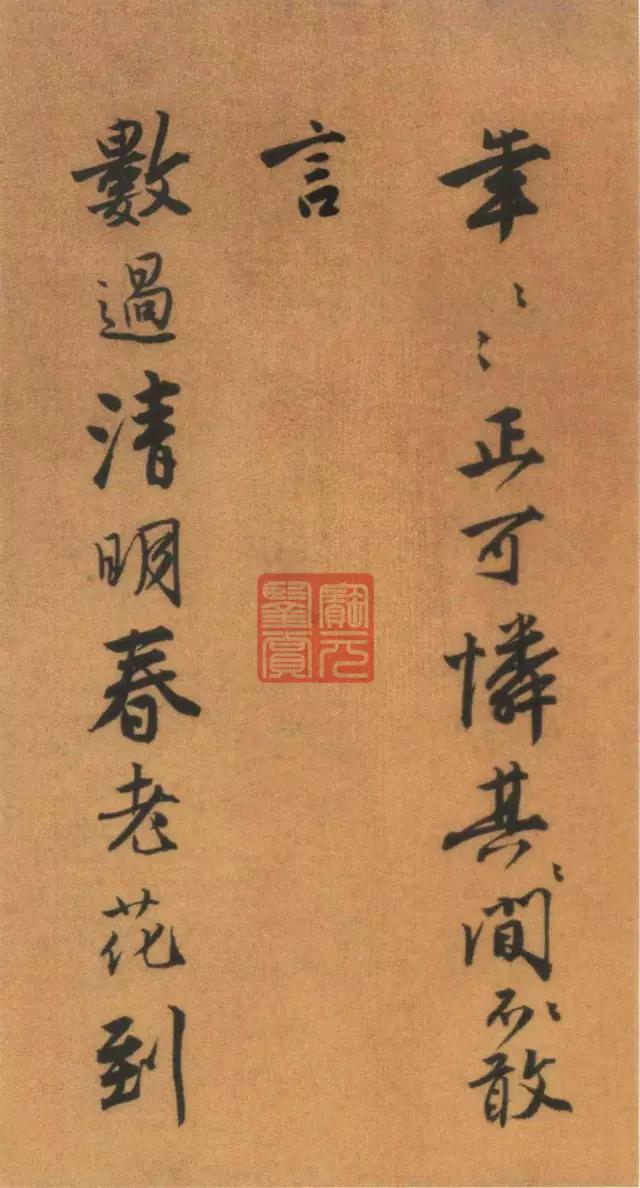 年〻正可憐其間不敢
言
數過清明春老花到
寶元
鑒賞